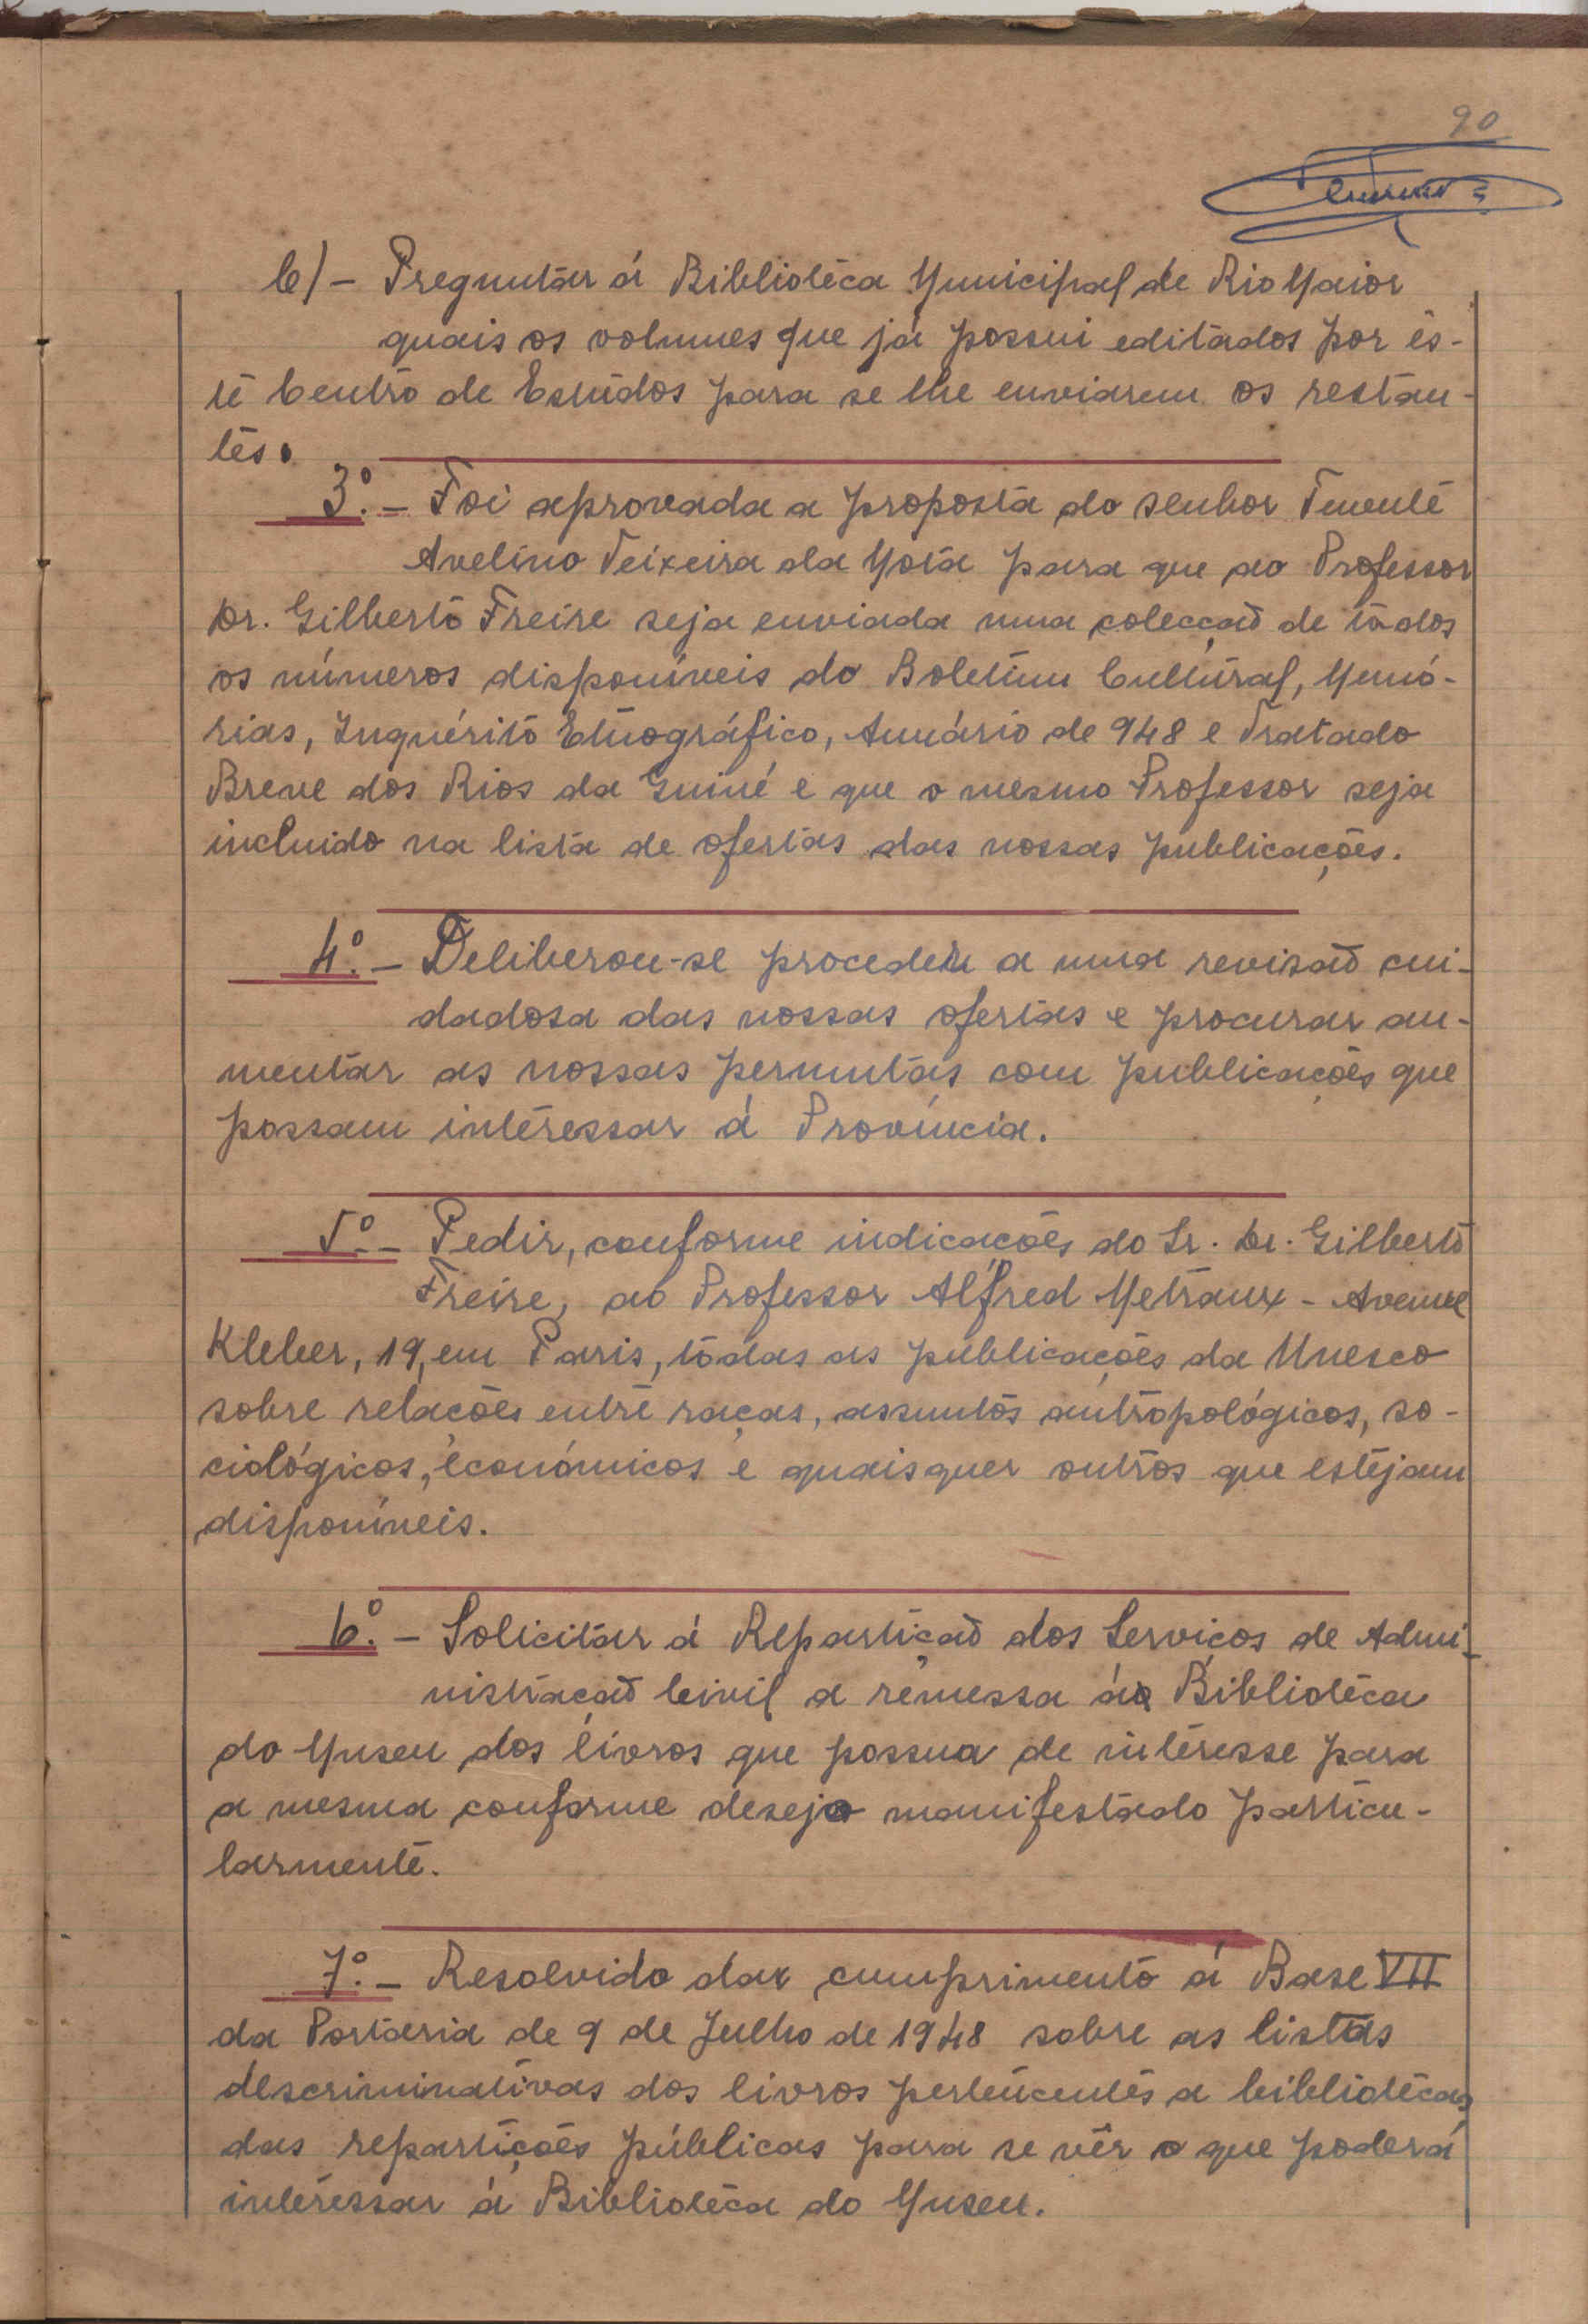 90
C) - Preguntar á Bibliotéca Municipal de Rio Maior
quais os volumes que já possui editados por ês-
te Centro de Estudos para se lhe enviarem os restan-
tes.
3º. - Foi aprovada a proposta do senhor Tenente
Avelino Teixeira da Mota para que ao Professor
Dr. Gilberto Freire seja enviada uma colecção de todos
os números disponíveis do Boletim Cultural, Memó-
rias, Inquérito Etnográfico, Anuário de 948 e Tratado
Breve dos Rios da Guiné e que o mesmo Professor seja
incluido na lista de ofertas das nossas publicações.
4º. - Deliberou-se proceder a uma revisão cui-
dadosa das nossas ofertas e procurar au-
mentar as nossas permutas com publicações que
possam interessar á Província.
5º. - Pedir, conforme indicações do Sr. Dr. Gilberto
Freire, ao Professor Alfred Metraux - Avenue
Kleber, 19, em Paris, todas as publicações da Unesco
sobre relações entre raças, assuntos antropológicos, so-
ciológicos, económicos e quaisquer outros que estejam
disponíveis.
6º. - Solicitar á Repartição dos Serviços de Admi-
nistração Civil a remessa á Bibliotéca
do Museu dos livros que possua de interesse para
a mesma conforme desejo manifestado particu-
larmente.
7º. - Resolvido dar cumprimento á Base VII
da Portaria de 9 de Julho de 1948 sobre as listas
descriminativas dos livros pertencentes a bibliotécas
das repartições públicas para se vêr o que poderá
interessar á Bibliotéca do Museu.